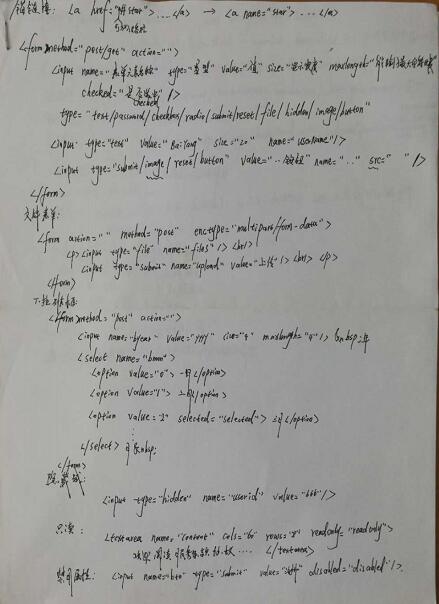 锚链接: <a href="#star">....</a> → <a name="star">...</a>
<form method="post/get" action="">
<input name="表单元素名称" type="类型" value="值" size="显示宽度" maxlength="
checked="是否选中" />
checked
type="text/password/checkbox/radio/submit/reset/file/hidden/image/button"
<input type="text" value="BaiYang" size="20" name="username"/>
<input type="submit/image/reset/button" value="..按钮" name=".." src=" "/>
</form>
文件表单:
<form action="" method="post" enctype="multipart/form-data">
<p><input type="file" name="files"/><br/>
<input type="submit" name="upload" value="上传"/><br/> </p>
</form>
下拉列表框:
<form method="post" action="">
<input name="byear" value="yyyy" size="4" maxlength="4"/> &nbsp;年
<select name="bmon">
<option value="0">一月</option>
<option value="1">二月</option>
<option value="2" selected="selected">三月</option>
⋮
</select> 月&nbsp;
</form>
隐藏域:
<input type="hidden" name="userid" value="666"/>
只读:
<textarea name="content" cols="60" rows="8" readonly="readonly">
欢迎阅读服务条款协议.... </textarea>
禁用属性: <input name="btn" type="submit" value="" disabled="disabled"/>.